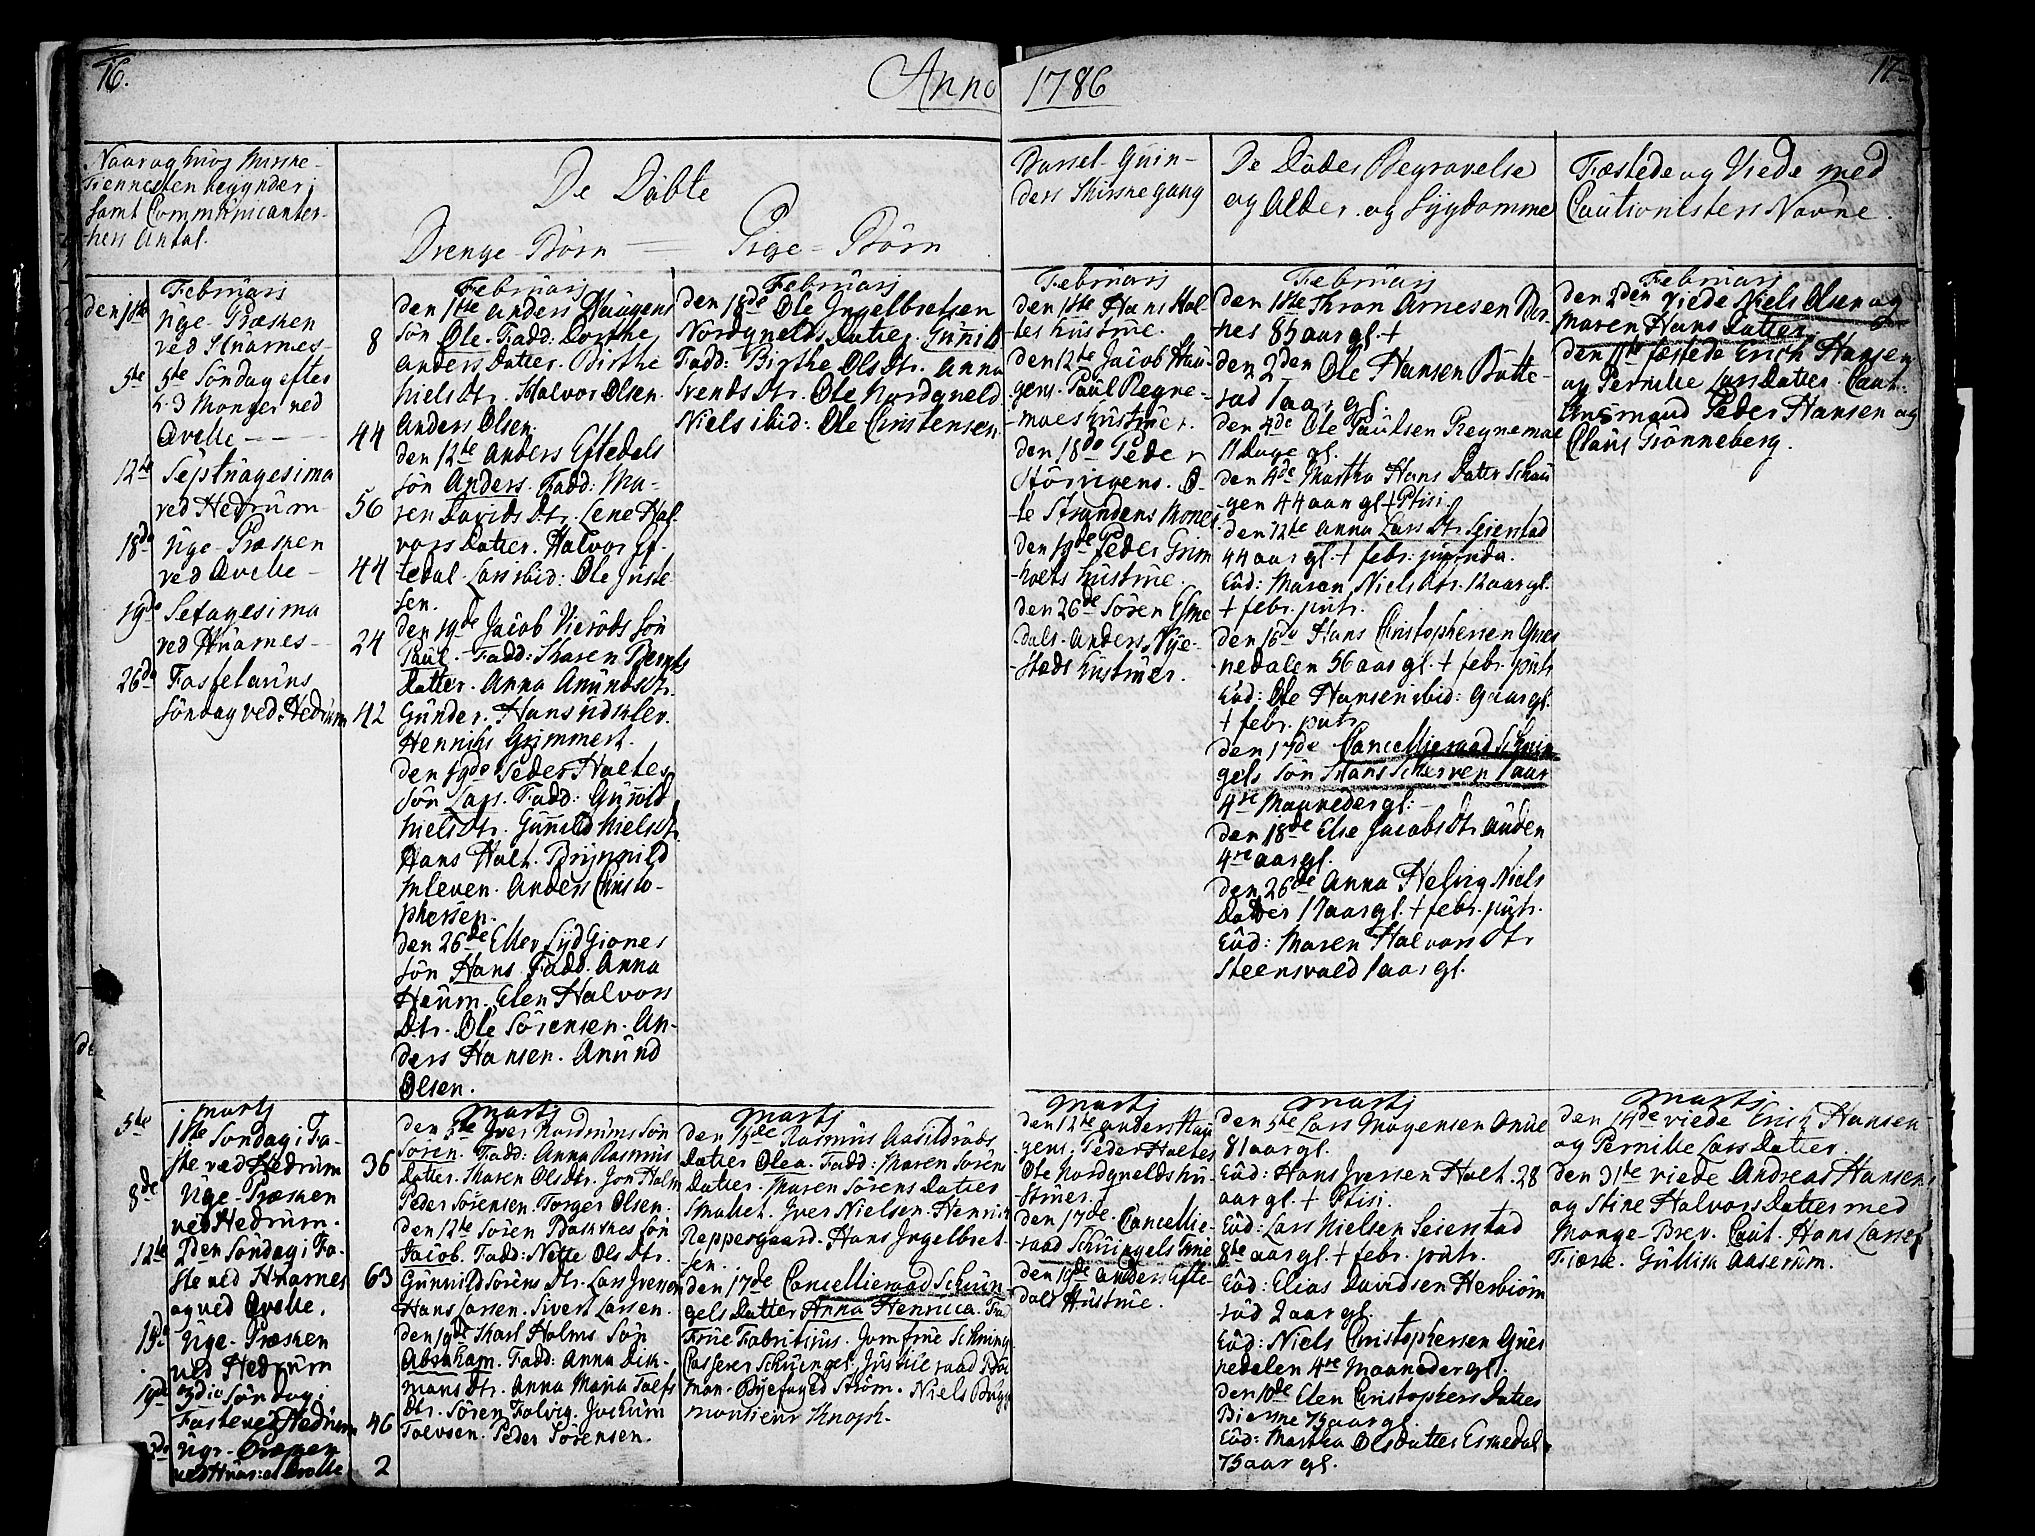 16.
Anno 1786
17
Naar og hvor Kirske-
Tiennesten begynder,
samt Communicanter-
hers Antal.
De Döbte
Drenge-Börn — Pige-Börn
Barsel-Qvin-
ders Kirkegang
De Dödes Begravelse
og Alder og Sygdomme
Fæstede og Viede med
Cautionisters Navne.
Februarj
den 1ste Uge-Præken
ved Kuarnes- 8
5te 5te Söndag efter
h. 3 Konger ved
Qvelle - - - 44
12te Septuagesima
ved Hedrum 56
18de Uge-Præken
ved Qvelle - 44
19de Sexagesima
ved Kuarnes- 24
26de Fastelauns
Söndag ved Hedrum 42
Februarj
den 1ste Anders Haugens
Sön Ole. Fadd: Dorthe
Anders Datter. Birthe
Niels Dtr. Halvor Olsen.
Anders Olsen.
den 12te Anders Eftedals
Sön Anders. Fadd: Ma-
ren Davids Dtr. Lene Hal
vors Datter. Halvor Ef-
tedal. Lars ibid: Ole Juste-
sen.
den 19de Jacob Vierøds Sön
Paul. Fadd: Karen Bernts
Datter. Anna Amunds Dtr.
Gunder. Hans
Henrich Grimmert.
den 19de Peder Holtes
Sön Lars. Fadd: Gunild
Niels Dtr. Gunild Niels Dtr.
Hans Holt. Brynnild
Anders Christo-
phersen.
den 26de Eller Sydgiones
Sön Hans. Fadd. Anna
Heum. Elen Halvors
Dtr. Ole Sörensen. An-
ders Hansen. Amund
Olsen.
Februarj
den 18de Ole Ingelbretsen
Nordqvelds Datter Gunild
Fadd: Birthe Ols Dtr. Anna
Svends Dtr. Ole Nordqveld
Niels ibid: Ole Christensen.
Februarj
den 1ste Hans Hol-
tes hustrue.
den 12te Jacob Hau-
gens. Paul Regne-
moes hustruer.
den 18de Peder
O-
le Strandens Koner
den 19de Peder Grim
-holts hustrue.
den 26de Sören Esme
dals. Anders Nye-
-steds hustruer.
Februarj
den 1ste Thron Arnesen Bor-
nes 85 aar gl. +
den 2den Ole Hansen Bötte-
röd 1 aar gl.
den 4de Ole Paulsen Regnemoe
11 Dage gl.
den 4de Martha Hans Datter Skau
gen 44 aar gl + Ptisi.
den 12te Anna Lars Dtr. Seierstad
44 aar gl. + febr:
Eùd: Maren Niels Dtr. 12 aar gl.
+ febr. putr.
den 16de Hans Christophersen Gues
nedalen 56 aar gl. + febr. putr
Eùd: Ole Hansen ibid: 9 aar gl.
+ febr. putr.
den 17de Cancellieraad Schuin
gels Sön Hans Scherven 1 aar
4re Maaneder gl:-
den 18de Else Jacobs Dtr. Auden
4re aar gl.
den 26de Anna Helvig Niels
Datter 17 aar gl. + febr. putr.
Eùd: Maren Halvors Dtr
Steensvald 1 aar gl.
Februarj
den 2den Viede Niels Olsen og
Maren Hans Datter.
den 11te fæstede Erich Hansen
og Pernille Lars Datter. Caut:
Ansmand Peder Hansen og
Claus Grönneberg.
Martj
5te 1ste Söndag i Fa-
ste ved Hedrum 36
8de Uge-Præken
ved Hedrum.
12te 2den Söndag i Fa-
ste ved Kuarnes 63
og ved Qvelle.
Uge-Præken
ved Hedrum
19de 3die Söndag i
Faste ved Hedrum 46
Uge-Præken
ved Kuar: og Qvelle 2
Martj
den 5te Iver Nordrums Sön
Sören. Fadd: Anna Rasmus
Datter. Karen Ols Dtr. Jon Holm
Peder Sörensen. Torger Olsen.
den 12te Sören Bakkes Sön
Jacob. Fadd: Nette Ols Dtr.
Gunnild Sörens Dtr. Lars Iversen
Hans Larsen. Siver Larsen.
den 19de Karl Holms Sön
Abraham. Fadd: Anna Dik-
mans Dtr. Anna Maria Toefs
Dtr. Sören Falvig. Jochum
Toevsen. Peder Sörensen.
Martj
den 15de Rasmus Aasildröds
Datter Olea. Fadd: Maren Sörens
Datter. Karen Sörens Datter
Iver Nielsen. Henrich
Reppesgaard. Hans Ingelbret
sen.
den 17de Cancellieraad Schuin
gels Datter Anna Henricca. Fad
Frue Fabritius. Jomfrue Schuing
Casserer Schuingel. Justice raad
Byefoged Ström. Niels Bugge
Monsieur Knoph.
Martj
den 12te Anders Hau
gens. Peder Holtes
Ole Nordqvelds hu-
struer.
den 17de Cancellie-
raad Schuingels Frue
den 19de Anders Efte-
dals Hustrue.
Martj
den 5te Lars Mogensen Omue
81 aar gl.
Eùd: Hans Iversen Holt. 28
aar gl. + Ptisi.
Eùd: Lars Nielsen Seierstad
8te aar gl. + febr. putr.
Eùd: Elias Davidsen Herbiöin
röd 2 aar gl.
Eùd: Niels Christophersen Gues
nedalen 4re Maaneder gl.
den 10de Elen Christophers Datter
Bierske 75 aar gl.
Eùd: Martha Ols Datter Esmedal
75 aar gl.
Martj
den 14de viede Erich Hansen
og Pernille Lars Datter.
den 31te viede Andreas Hansen
og Stine Halvors Datter med
Konge-Brev. Caut. Hans Larsen
Fiære. Gullik Aaserum.